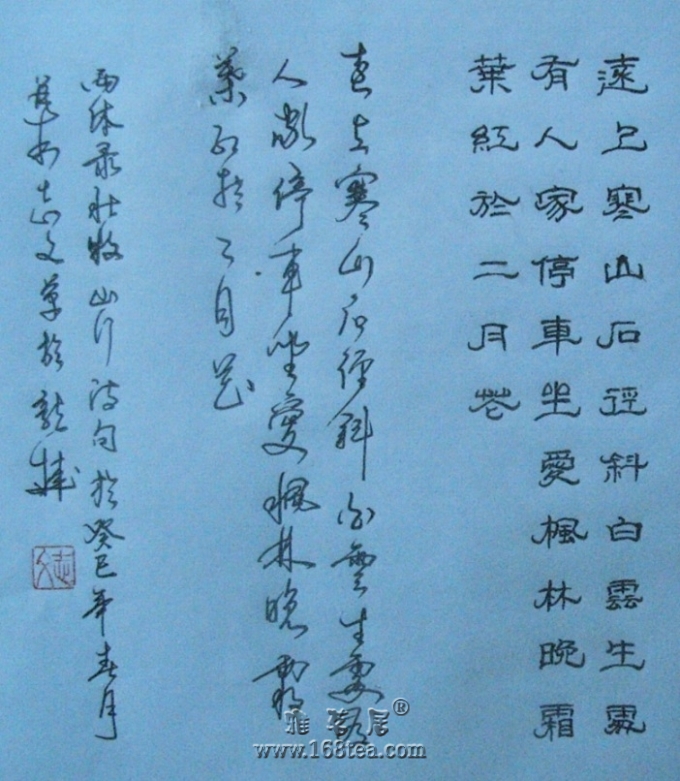 遠上寒山石徑斜白雲生處
有人家停車坐愛楓林晚霜
葉紅於二月花
遠上寒山石徑斜白雲生處有
人家停車坐愛楓林晚霜
葉紅於二月花
兩体录杜牧山行诗句於癸巳年春月
志文草於龍城
志文
雅茗居®
www.168tea.com